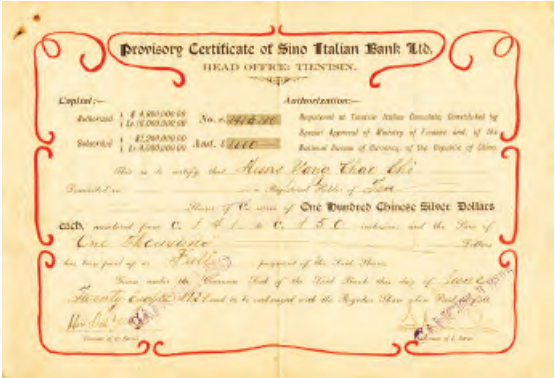 Provisory Certificate of Sino Italian Bank Ltd.
HEAD OFFICE: TIENTSIN.
Capital:—
Authorization:—
Authorized
No. c.
Registered at Tientsin Italian Consulate, Constituted by
Subscribed
Amt. $ 1000
Special Approval of Ministry of Finance and, of the
National Bureau of Currency, of the Republic of China.
This is to certify that Yang Chao Chi
Domiciled in Registered Holder of Ten
Shares of C. series of One Hundred Chinese Silver Dollars
each, numbered from C. 141 to C. 150 inclusive and the Sum of
One Thousand Dollars
has been paid up as Full payment of the Said Shares.
Given under the Common Seal of the Said Bank this day of June
Twenty and to be exchanged with the Regular Share when Paid in Full
CANCELLED
CANCELLED